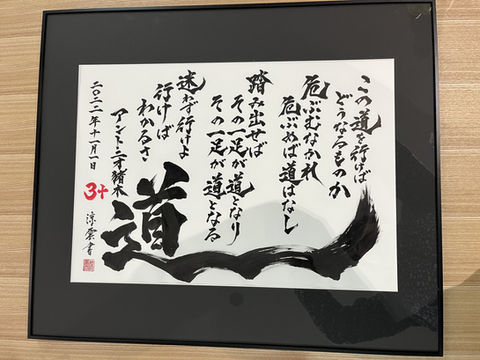 この道を行けば
どうなるものか
危ぶむなかれ
危ぶめば道はなし
踏み出せば
その一足が道となり
その一足が道となる
迷わず行けよ
行けば
わかるさ
二〇二二年十一月一日
アントニオ猪木
道
涼雲書